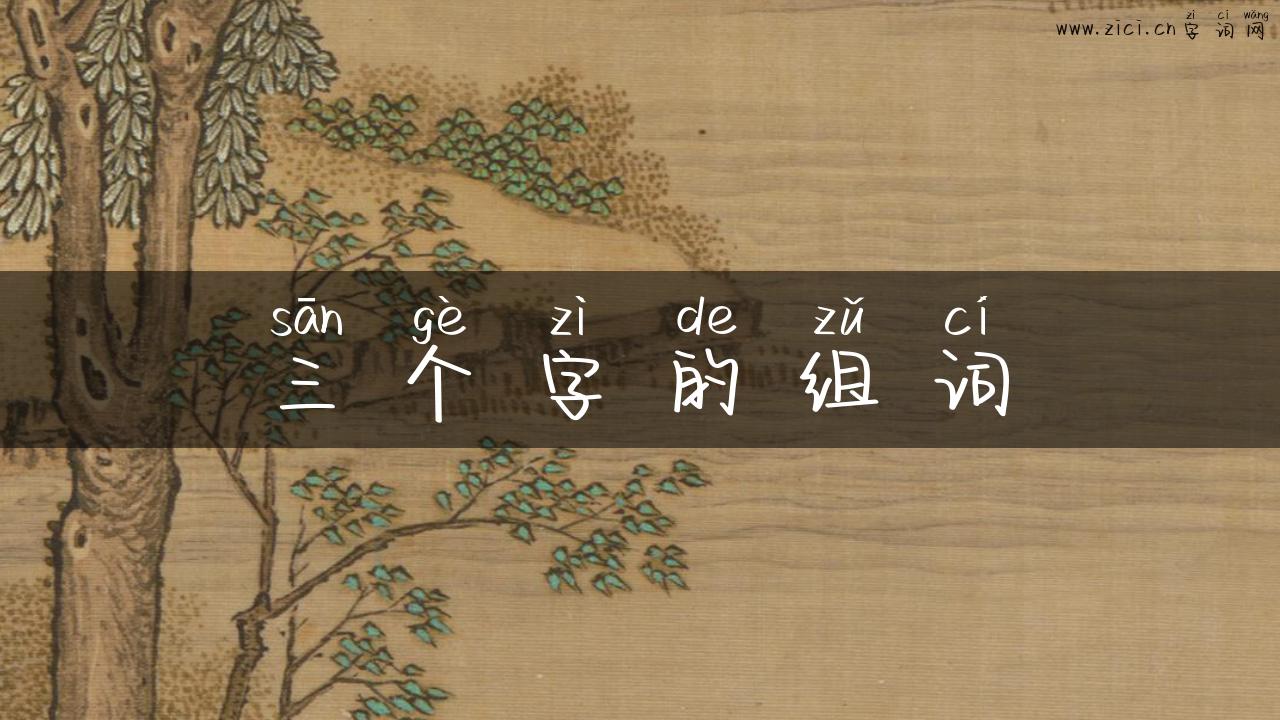 zì cí wǎng
www.zici.cn 字词网
sān gè zì de zǔ cí
三个字的组词